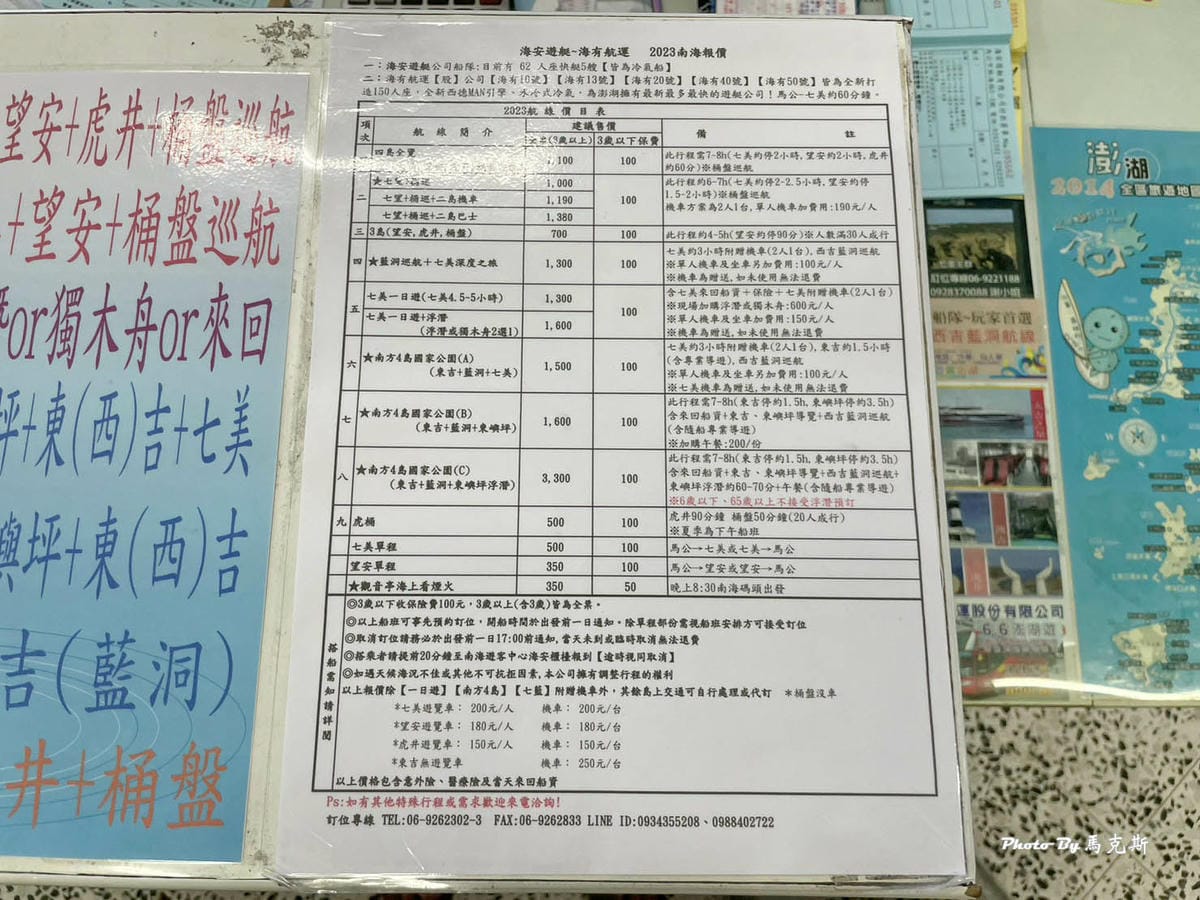 望安+虎井+桶盤巡航
+望安+桶盤巡航
or獨木舟or來回
坪+東(西)吉+七美
嶼坪+東(西)吉
吉(藍洞)
井+桶盤
海安遊艇~海有航運 2023南海報價
一：海安遊艇公司船隊:目前有 62 人座快艇5艘【皆為冷氣船】
二：海有航運【股】公司【海有10號】【海有13號】【海有20號】【海有40號】【海有50號】皆為全新打
造150人座，全新西德MAN引擎、水冷式冷氣，為澎湖擁有最新最多最快的遊艇公司！馬公-七美約60分鐘。
2023航線價目表
項次 航線簡介 建議售價 備註
全票(3歲以上) 3歲以下保費
四島全覽 1,100 100 此行程需7-8h(七美約停2小時,望安約2小時,虎井
約60分)※桶盤巡航
二 1,000 100 此行程約6-7h(七美約停2-2.5小時,望安約停
1.5-2小時)※桶盤巡航
七望+桶巡+二島機車 1,190 機車方案為2人1台,單人機車加費用:190元/人
七望+桶巡+二島巴士 1,380
三 3島(望安,虎井,桶盤) 700 100 此行程約4-5h(望安約停90分)※人數滿30人成行
四 ★藍洞巡航+七美深度之旅 1,300 100 七美約3小時附贈機車(2人1台),西吉巡航
※單人機車及坐車另加費用:100元/人
※機車為贈送,如未使用無法退費
五 七美一日遊(七美4.5-5小時) 1,300 100 含七美來回船資+保險+七美附贈機車(2人1台)
※現場加購浮潛或獨木舟:600元/人
七美一日遊+浮潛 1,600 ※單人機車及坐車加費用:150元/人
(浮潛或獨木舟2選1) ※機車為贈送,如未使用無法退費
六 ★南方4島國家公園(A) 1,500 100 七美約3小時附贈機車(2人1台),東吉約1.5小時
(東吉+藍洞+七美) (含專業導遊),西吉藍洞巡航
※單人機車及坐車另加費用:100元/人
※七美機車為贈送,如未使用無法退費
七 ★南方4島國家公園(B) 1,600 100 此行程需7-8h(東吉約停1.5h,東嶼坪停約3.5h)
(東吉+藍洞+東嶼坪) 含來回船資+東吉、東嶼坪導覽+西吉藍洞巡航
(含隨船專業導遊)
※加購午餐:200/份
八 ★南方4島國家公園(C) 3,300 100 此行程需7-8h(東吉約停1.5h,東嶼坪停約3.5h)
(東吉+藍洞+東嶼坪浮潛) 含來回船資+東吉、東嶼坪導覽+西吉藍洞巡航+
東嶼坪浮潛約60-70分+午餐(含隨船專業導遊)
※6歲以下、65歲以上不接受浮潛預訂
九 虎桶 500 100 虎井90分鐘 桶盤50分鐘(20人成行)
※夏季為下午船班
七美單程 500 100 馬公→七美或七美→馬公
望安單程 350 100 馬公→望安或望安→馬公
★觀音亭海上看煙火 350 50 晚上8:30南海碼頭出發
搭船需知請詳閱
◎3歲以下收保險費100元，3歲以上(含3歲)皆為全票。
◎以上船班可事先預約訂位，開船時間於出發前一日通知。除單程部份需視船班安排方可接受訂位
◎取消訂位請務必於出發前一日17:00前通知,當天未到或臨時取消無法退費
◎搭乘者請提前20分鐘至南海遊客中心海安櫃檯報到【逾時視同取消】
◎如遇天候海況不佳或其他不可抗拒因素,本公司擁有調整行程的權利
以上報價除【一日遊】【南方4島】【七藍】附贈機車外，其餘島上交通可自行處理或代訂 *桶盤沒車
*七美遊覽車： 200元/人 機車： 200元/台
*望安遊覽車： 180元/人 機車： 180元/台
*虎井遊覽車： 150元/人 機車： 150元/台
*東吉無遊覽車 機車： 250元/台
以上價格包含意外險、醫療險及當天來回船資
Ps:如有其他特殊行程或需求歡迎來電洽詢!
訂位專線 TEL:06-9262302-3 FAX:06-9262833 LINE ID:0934355208、0988402722
訂位專線06-9221188
0928370088 謝小姐
船隊~玩家首選
西吉藍洞航線
運股份有限公司
澎湖
2014全區旅遊地圖
W
E
Photo By 馬克斯